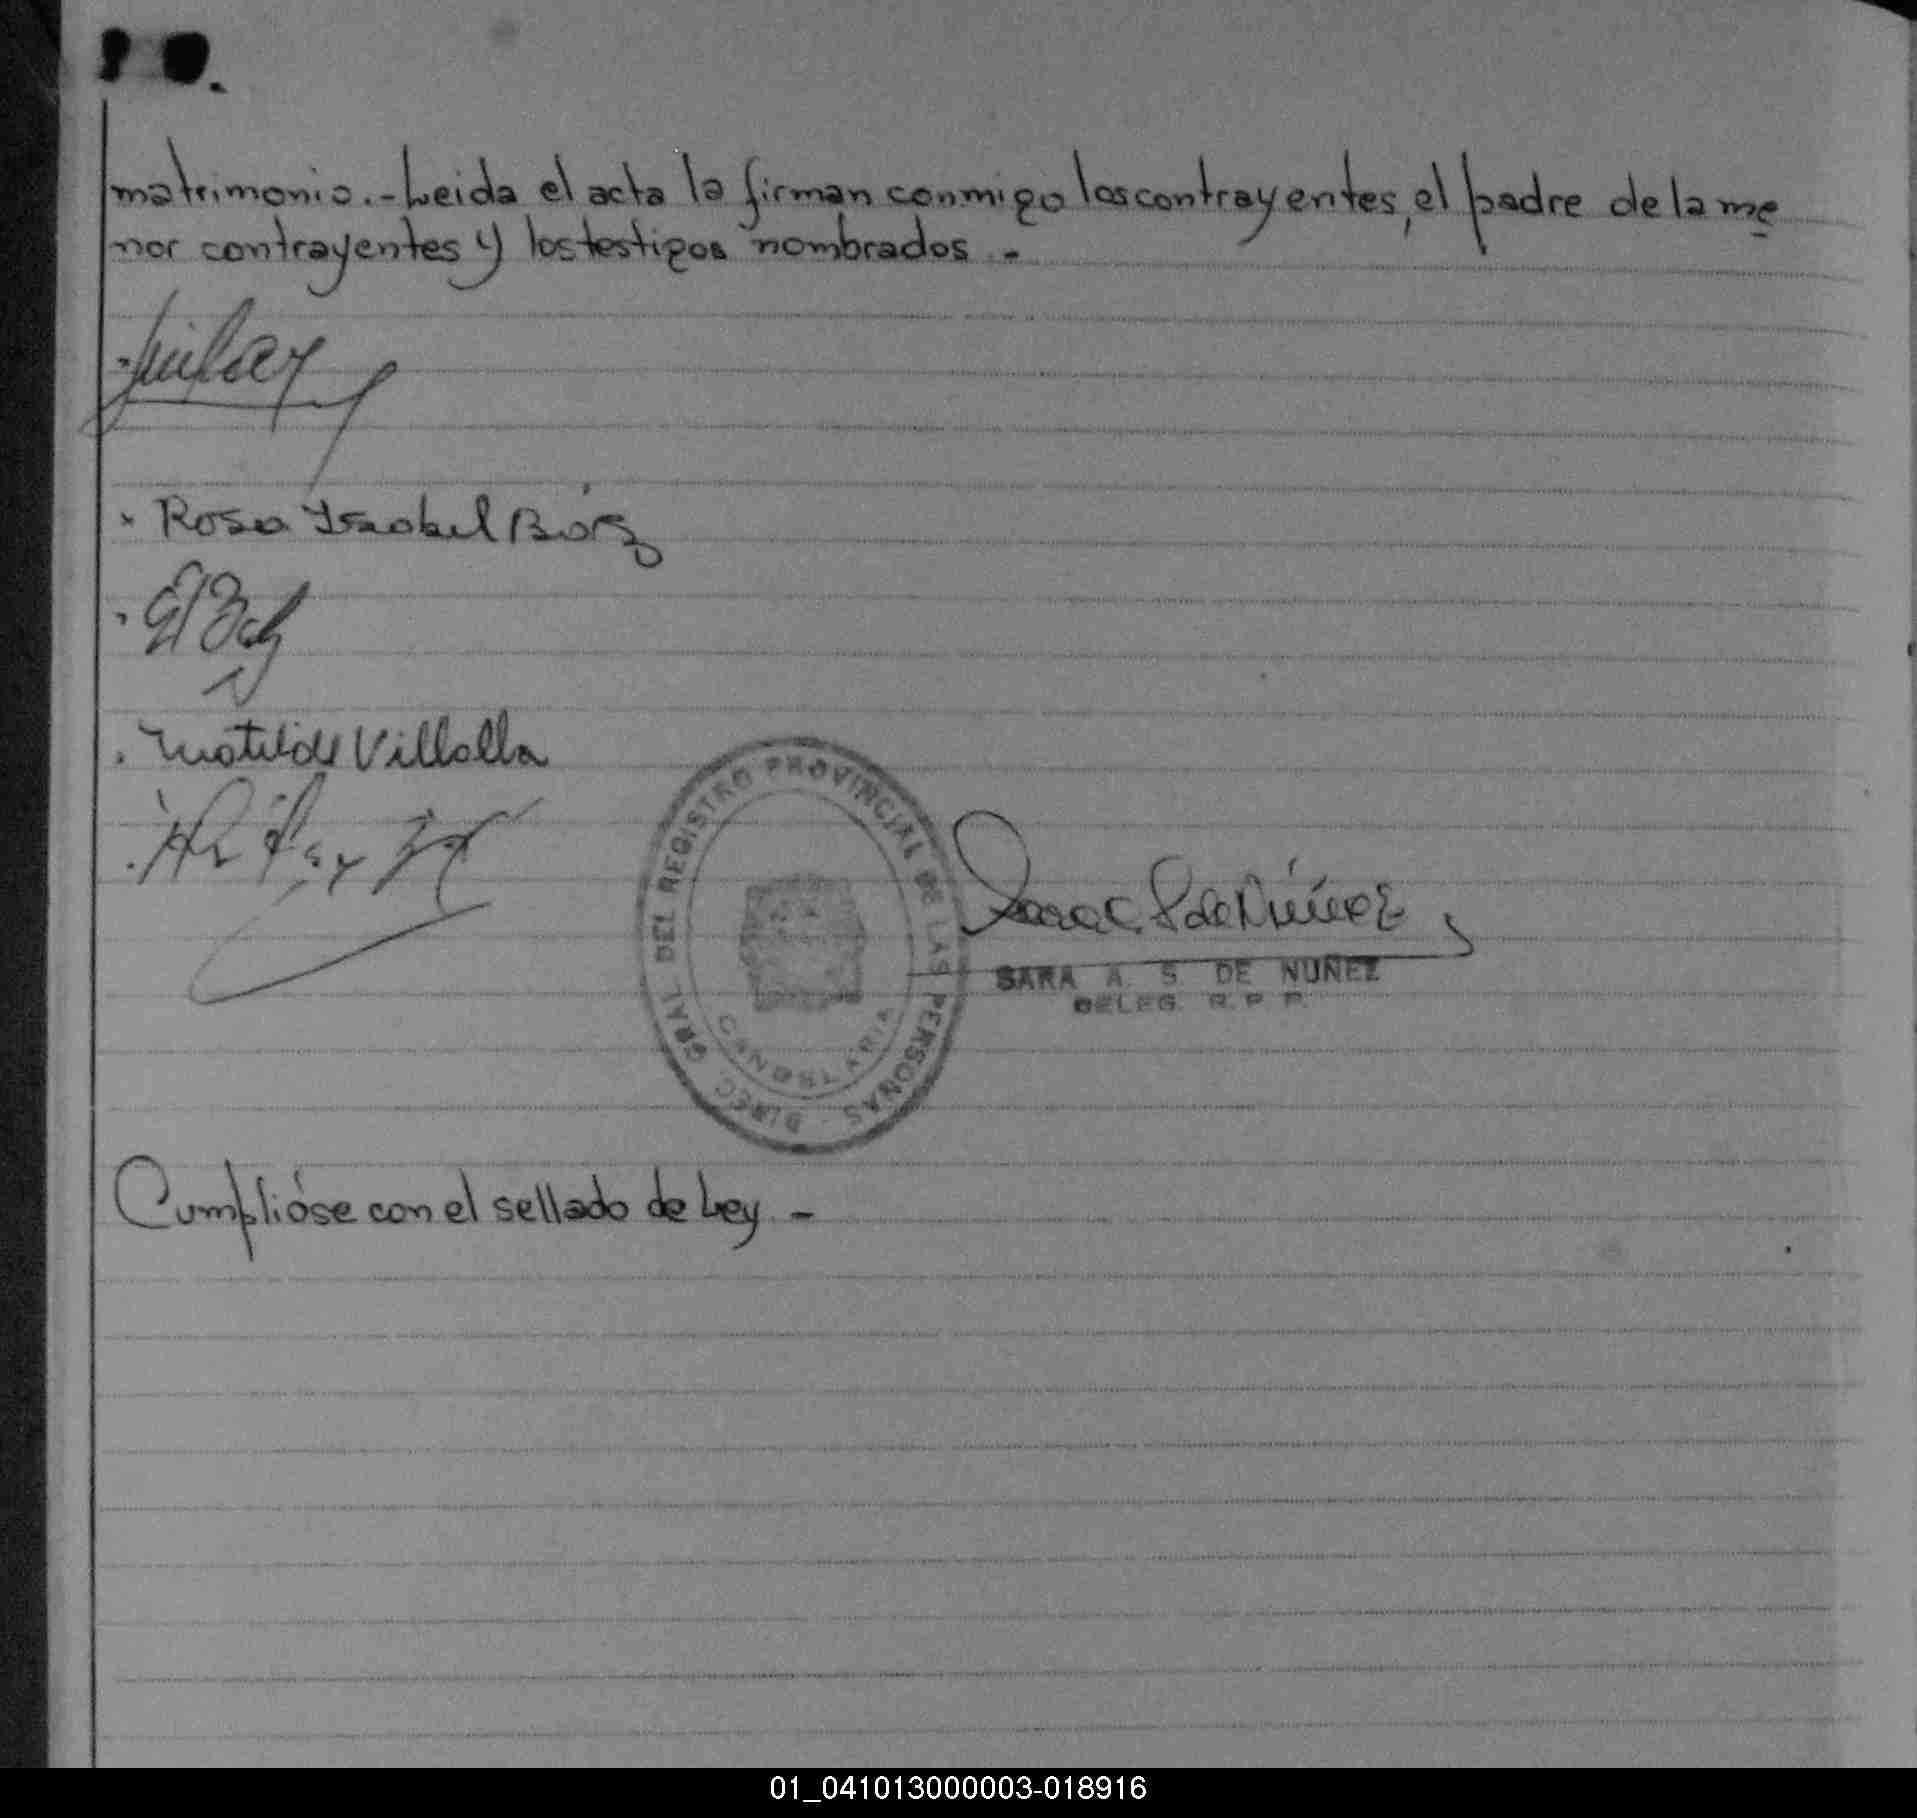 matrimonio.- Leida el acta la firman conmigo los contrayentes, el padre de la me
nor contrayentes y los testigos nombrados.-
Rosa Isabel
Matilde Villalla
DIREC. GRAL DEL REGISTRO PROVINCIAL DE LAS PERSONAS
de Núñez
SARA A. S. DE NUÑEZ
DELEG. R. P. P.
Cumplióse con el sellado de Ley.-
01_041013000003-018916